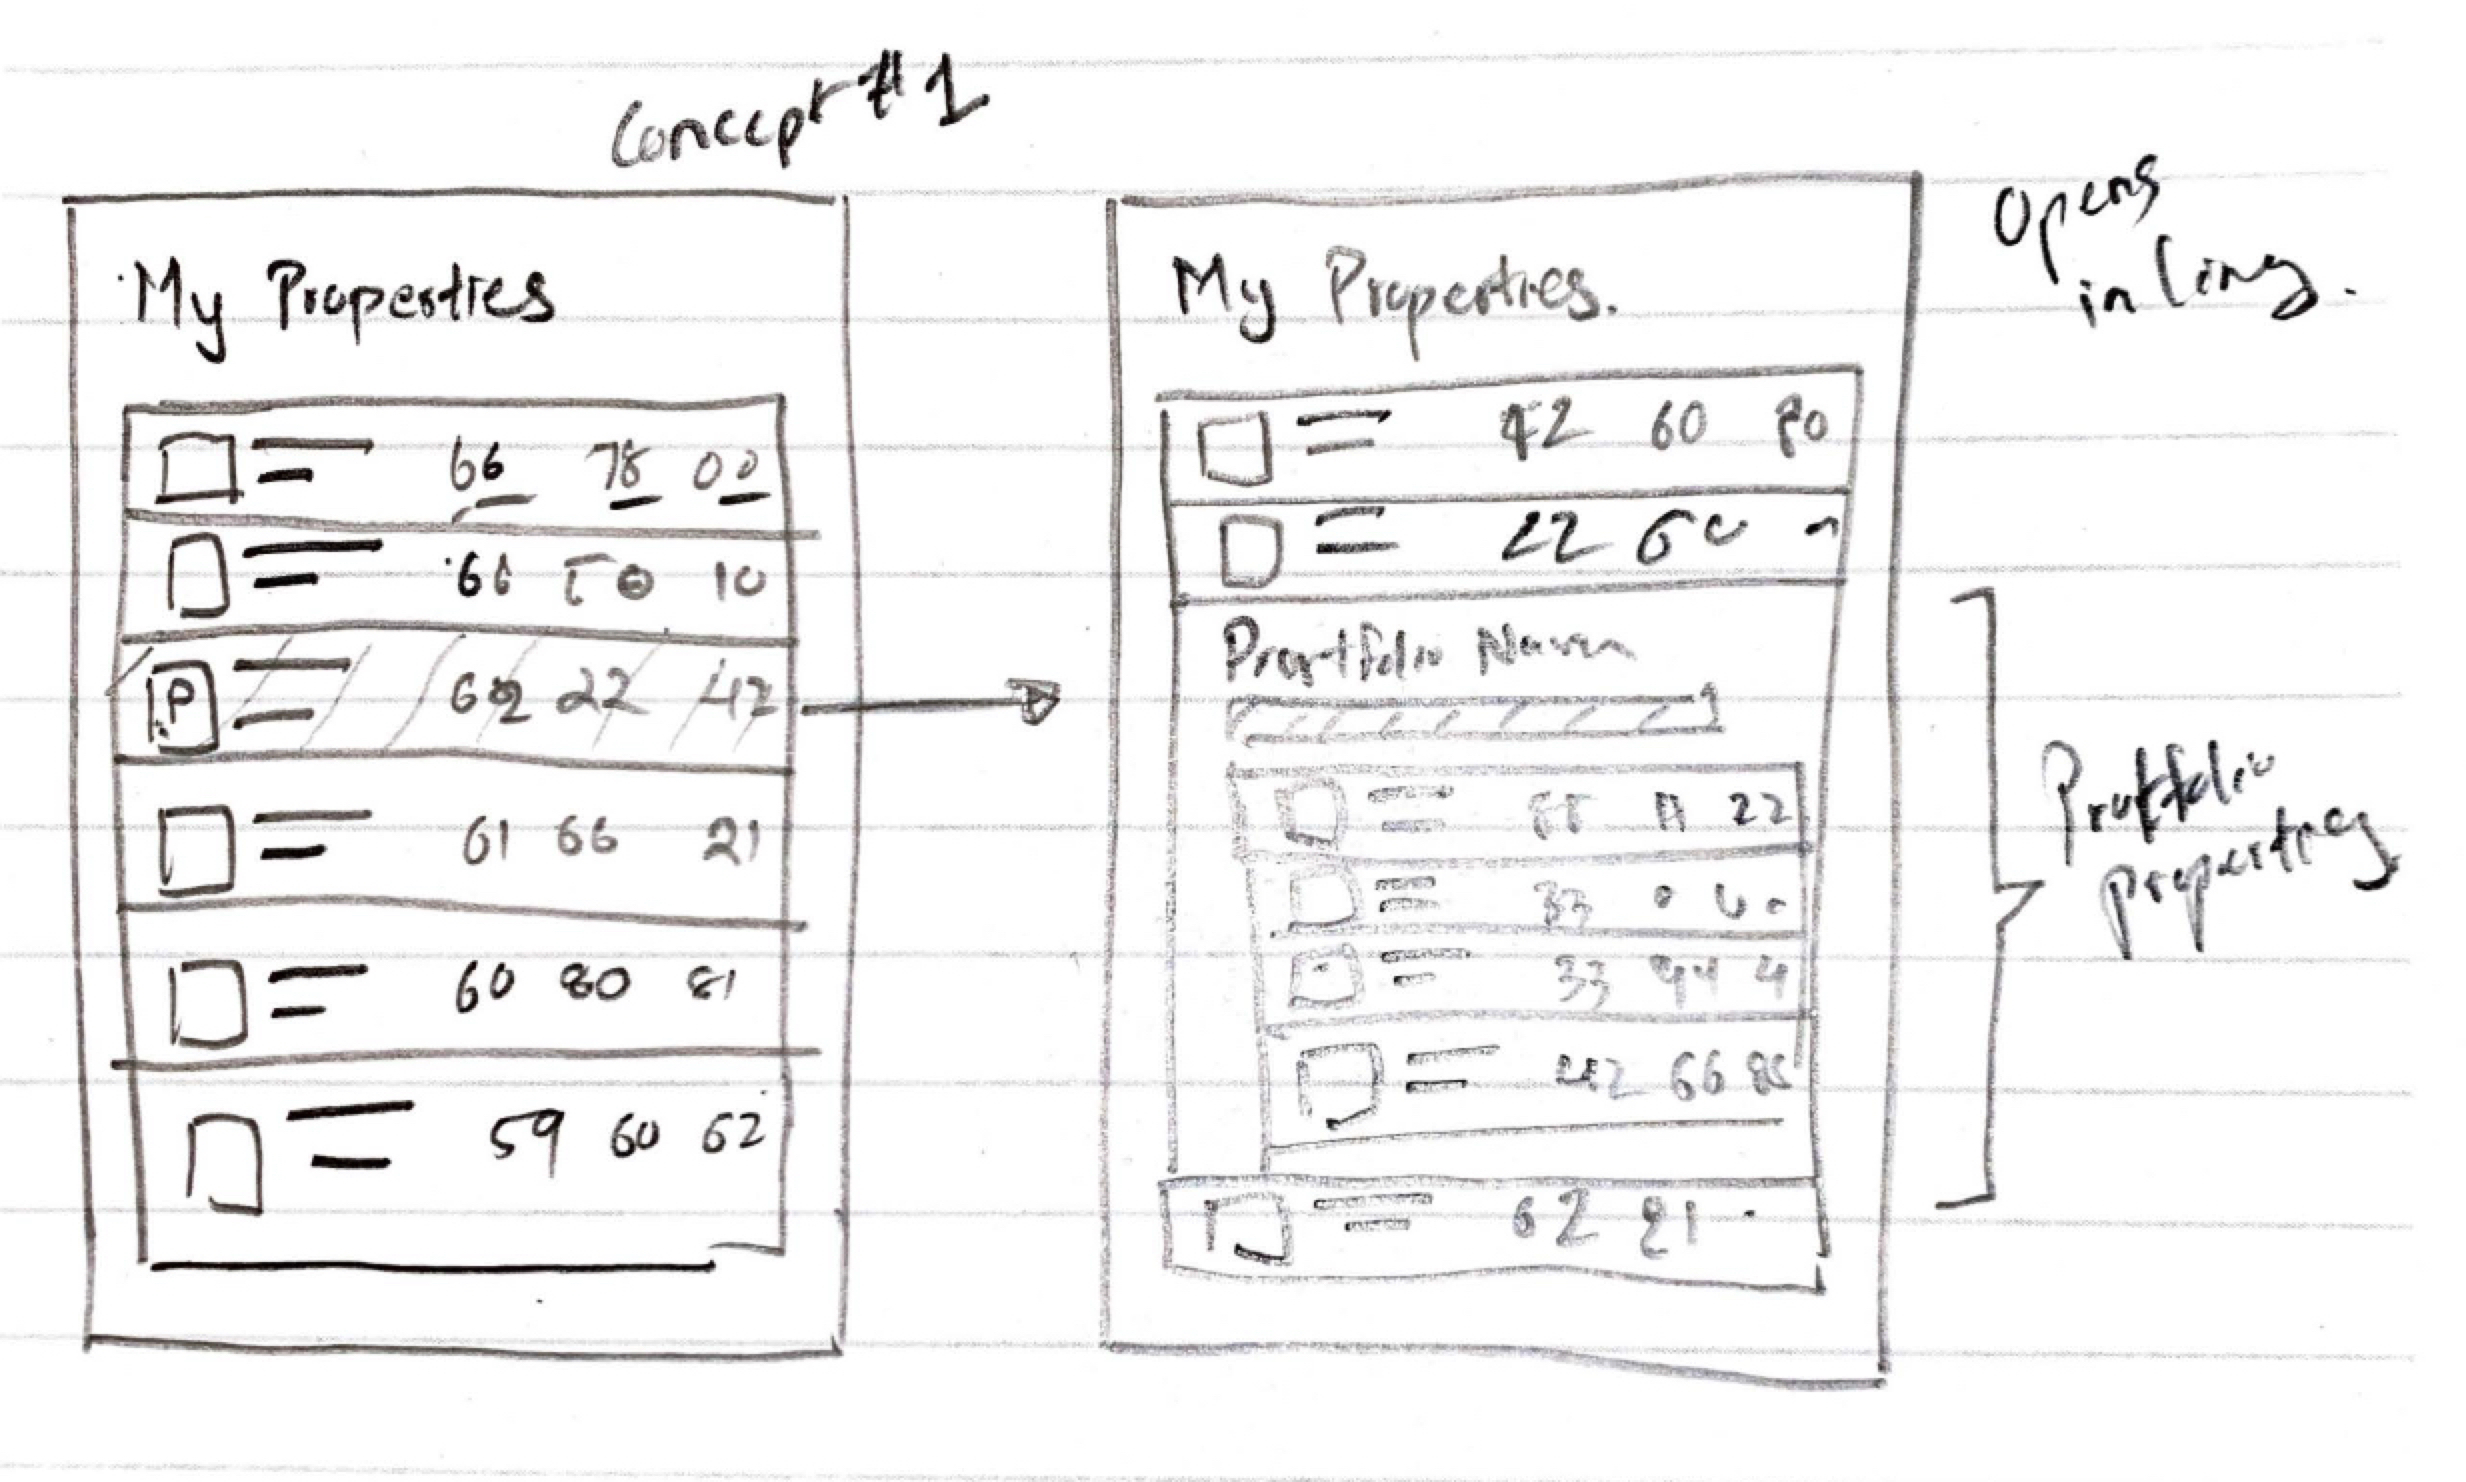 Concept #1
My Properties
66 78 00
66 10
P 62 22 42
61 66 21
60 80 81
59 60 62
My Properties.
42 60 80
22 60
Portfolio
22
33
33 44 4
66
62 21
Opens
in line.
Portfolio
properties